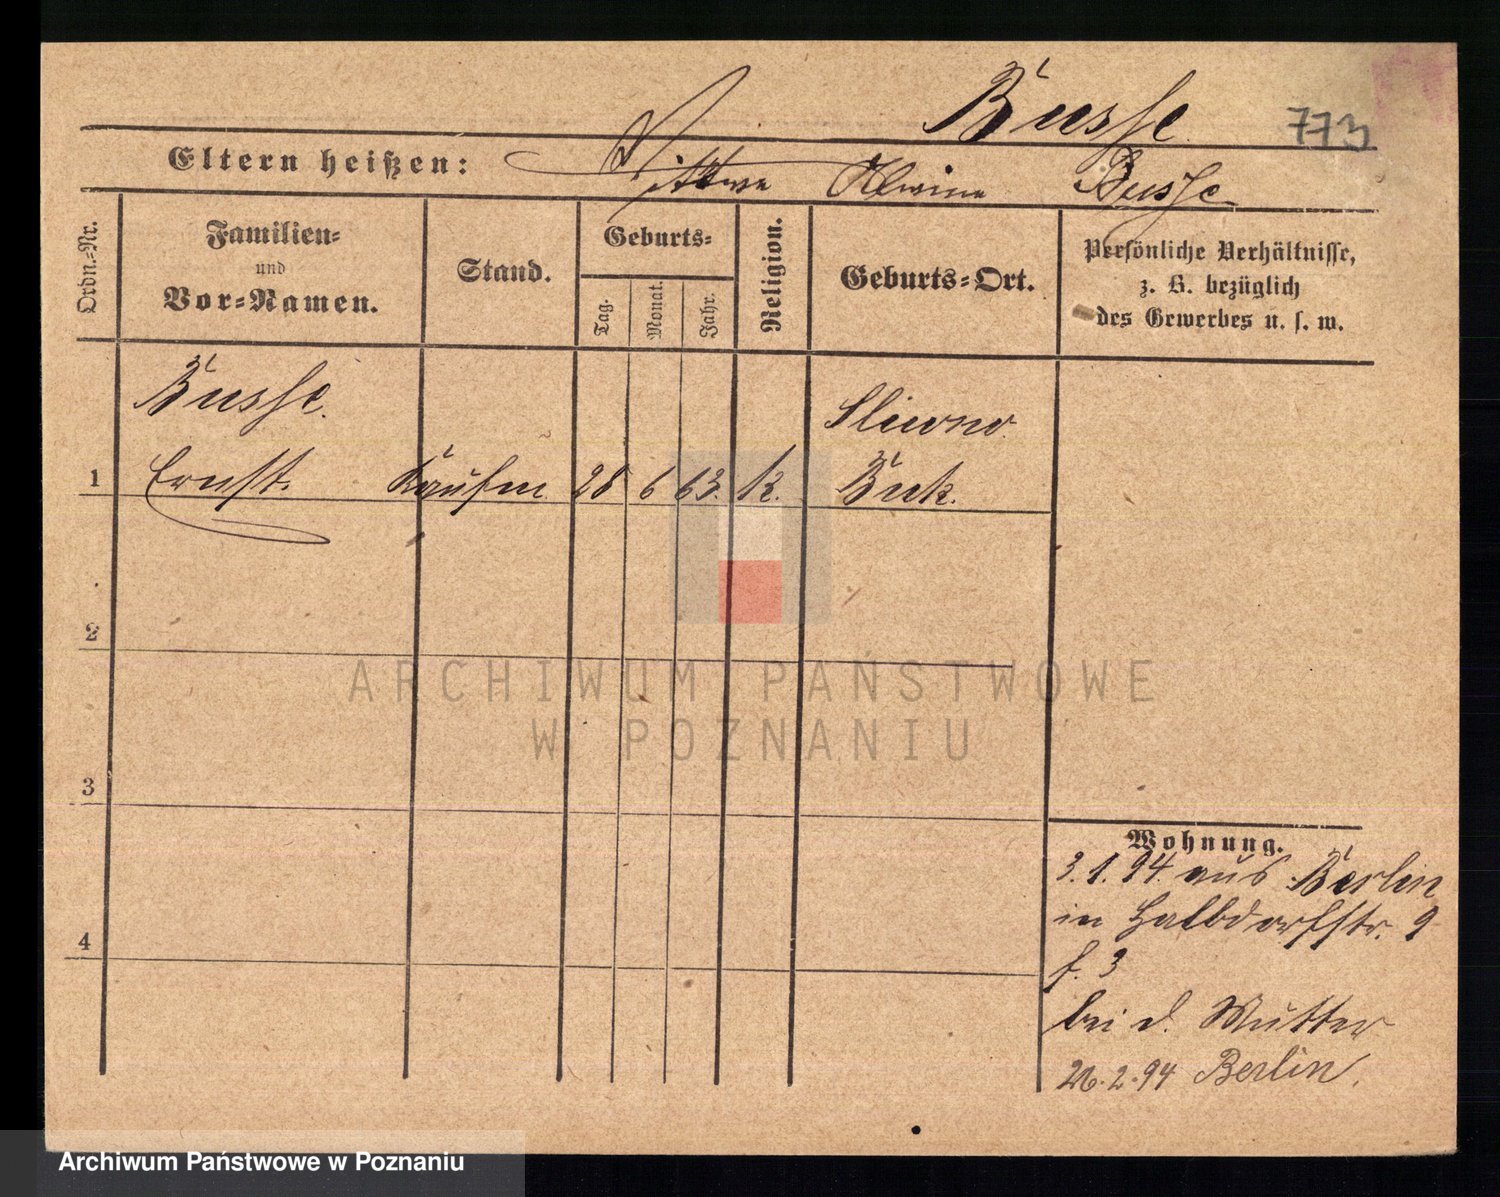 Busse.
773
Eltern heißen: Wittwe Alwine Busse
Ordn.-Nr.
Familien-
und
Vor-Namen.
Stand.
Geburts-
Tag.
Monat.
Jahr.
Religion.
Geburts-Ort.
Persönliche Verhältnisse,
z. B. bezüglich
des Gewerbes u. s. w.
Busse. Sliwno.
1 Ernst. Kaufm 28 6 63. k. Buk.
2
3
4
Wohnung.
3.1.94. aus Berlin
in Halbdorfstr. 9
f. 3
bei d. Mutter
26.2.94 Berlin.
ARCHIWUM PAŃSTWOWE
W POZNANIU
Archiwum Państwowe w Poznaniu